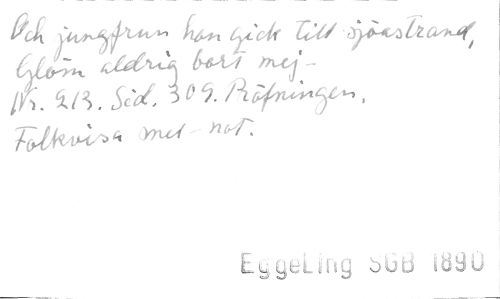 Och jungfrun hon gick till sjöastrand,
Glöm aldrig bort mej –
Nr. 213. Sid. 309. Pröfningen.
Folkvisa med not.
EggeLIng SGB 1890